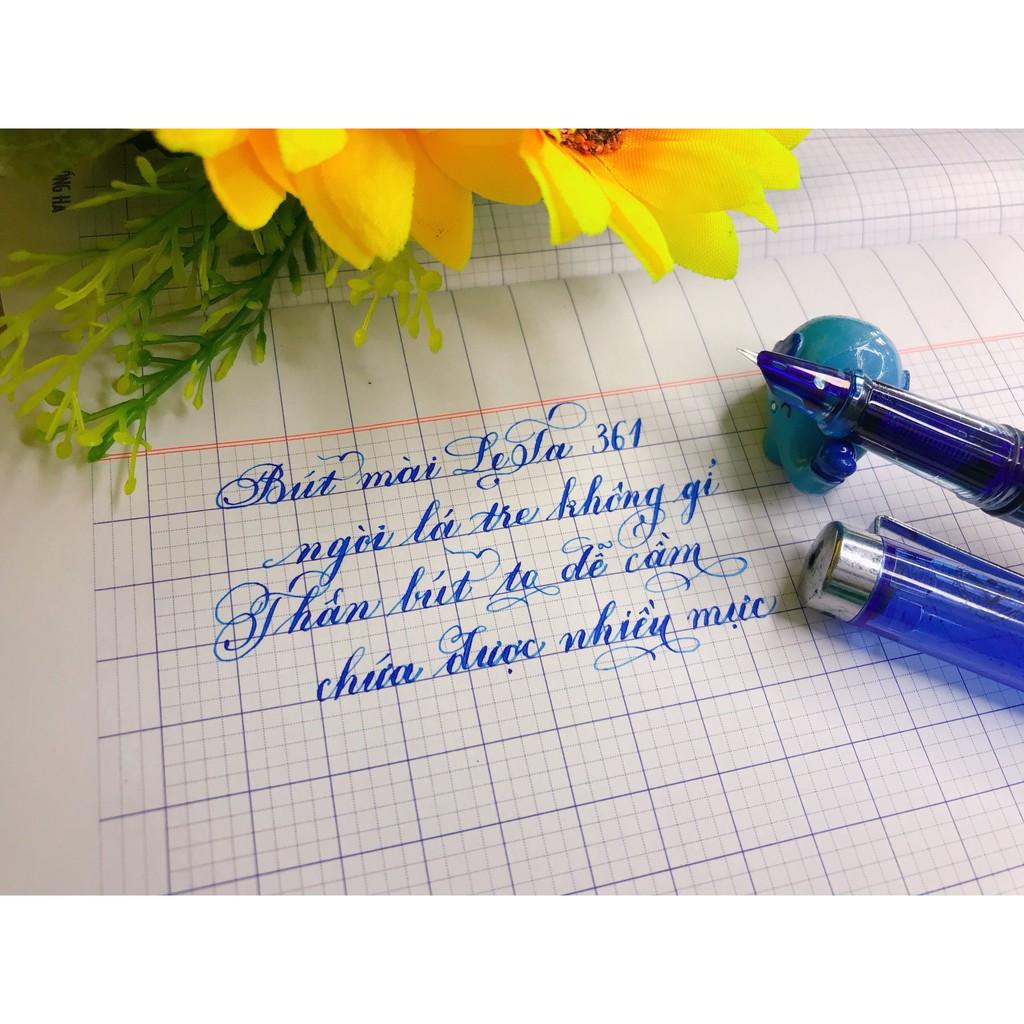 ỒNG HÀ
Bút mài Lẹ Ta 361
ngòi lá tre không gỉ
Thân bút to dễ cầm
chứa được nhiều mực